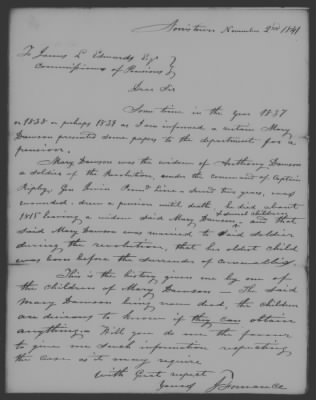 November 2nd 1841
To James L Edwards Esqr
Commissioner of Pensions
Dear Sir
Some time in the year 1837
or 1838 or perhaps 1839 as I am informed, a certain Mary
Dawson presented some papers to the department for a
pension.
Mary Dawson was the widow of Anthony Dawson
a soldier of the Revolution, under the command of Captain
Ripley, Gen served two years, was
wounded, drew a pension until death, he died about
1815 leaving a widow said Mary Dawson, & several children, and that
said Mary Dawson was married to said soldier
during the revolution, that her oldest child
was born before the surrender of Cornwallis
This is the history given me by one of
the children of Mary Dawson — The said
Mary Dawson being now died, the children
are desirous to know if they can obtain
anything. Will you do me the favour
to give me such information respecting
the case as it may require
With Grt respect
Yours